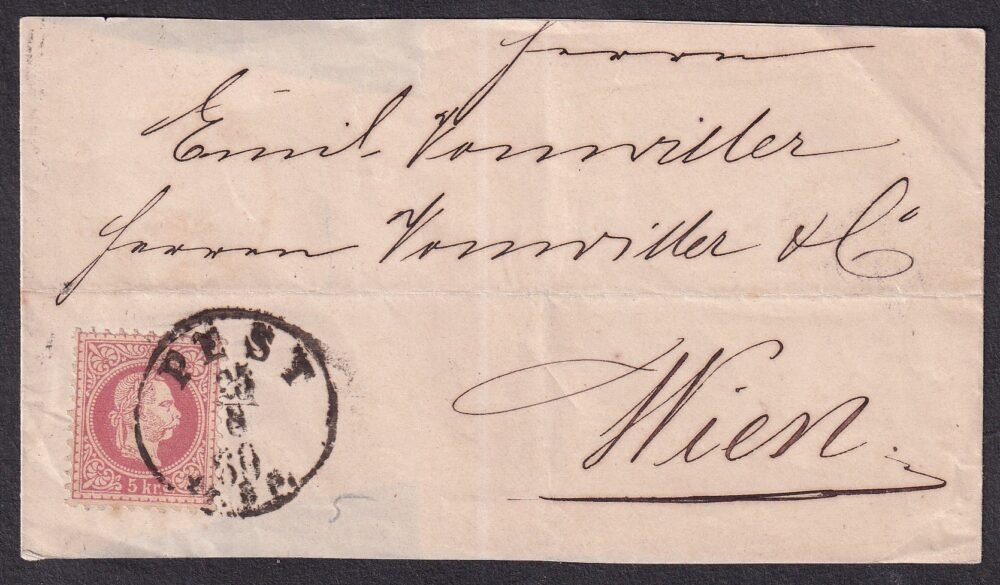 Herrn
Emil Vonwiller
Herren Vonwiller & Co
Wien.
PEST
5 kr
5